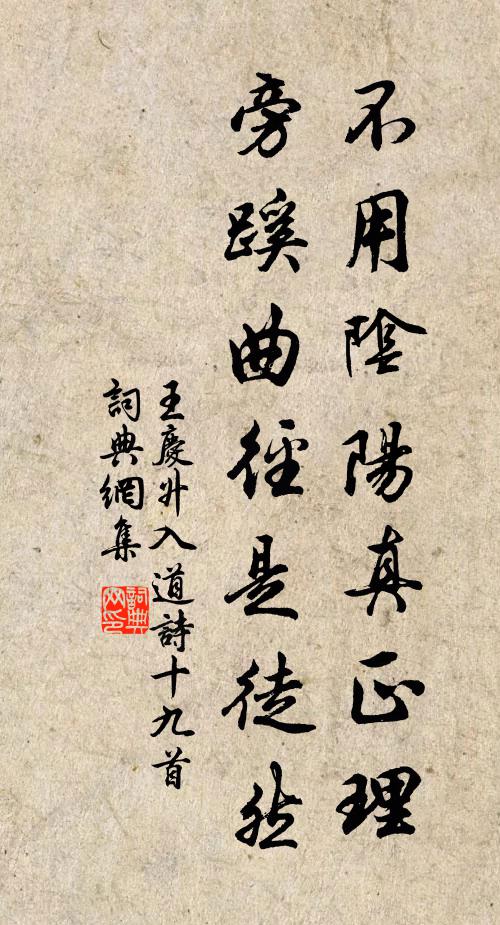 不用陰陽真正理
旁蹊曲徑是徒然
王慶升入道詩十九首
詞典網集
詞典网印